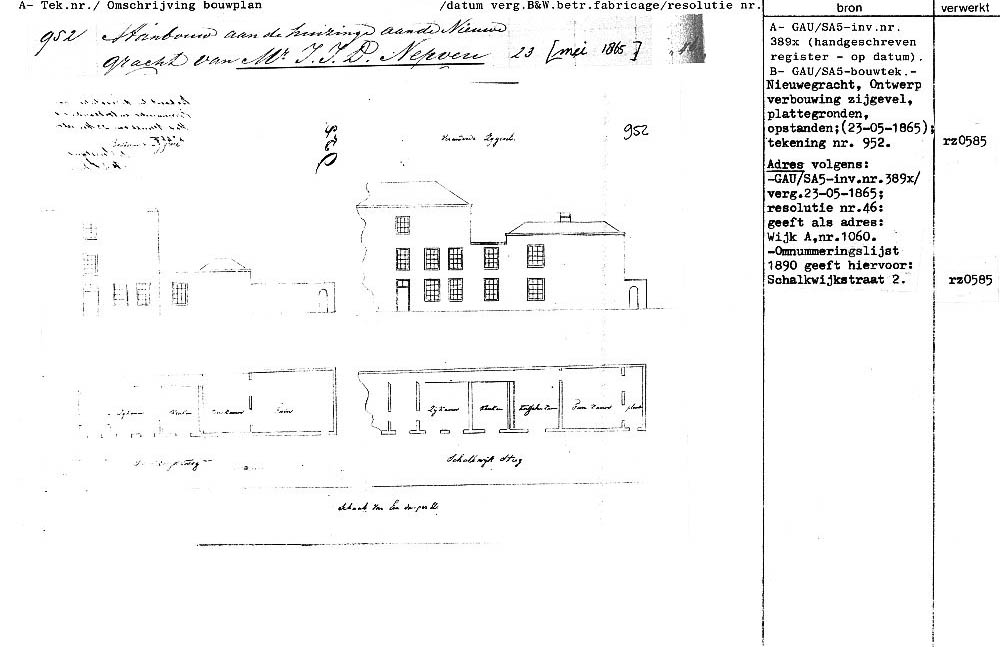 A- Tek.nr./ Omschrijving bouwplan /datum verg.B&W.betr.fabricage/resolutie nr.
bron
verwerkt
952 Aanbouw aan de huizinge aan de Nieuwe
gracht van Mr J. J. D. Nepveu 23 [mei 1865]
952
952
Zijkamer
Keuken
Tuin
Zijkamer
Keuken
Tuin kamer
plaats
Schalkwijk Steeg
Schaal van
A- GAU/SA5-inv.nr.
389x (handgeschreven
register - op datum).
B- GAU/SA5-bouwtek.-
Nieuwegracht, Ontwerp
verbouwing zijgevel,
plattegronden,
opstanden;(23-05-1865);
tekening nr. 952.
rz0585
Adres volgens:
-GAU/SA5-inv.nr.389x/
verg.23-05-1865;
resolutie nr.46:
geeft als adres:
Wijk A,nr.1060.
-Omnummeringslijst
1890 geeft hiervoor:
Schalkwijkstraat 2.
rz0585